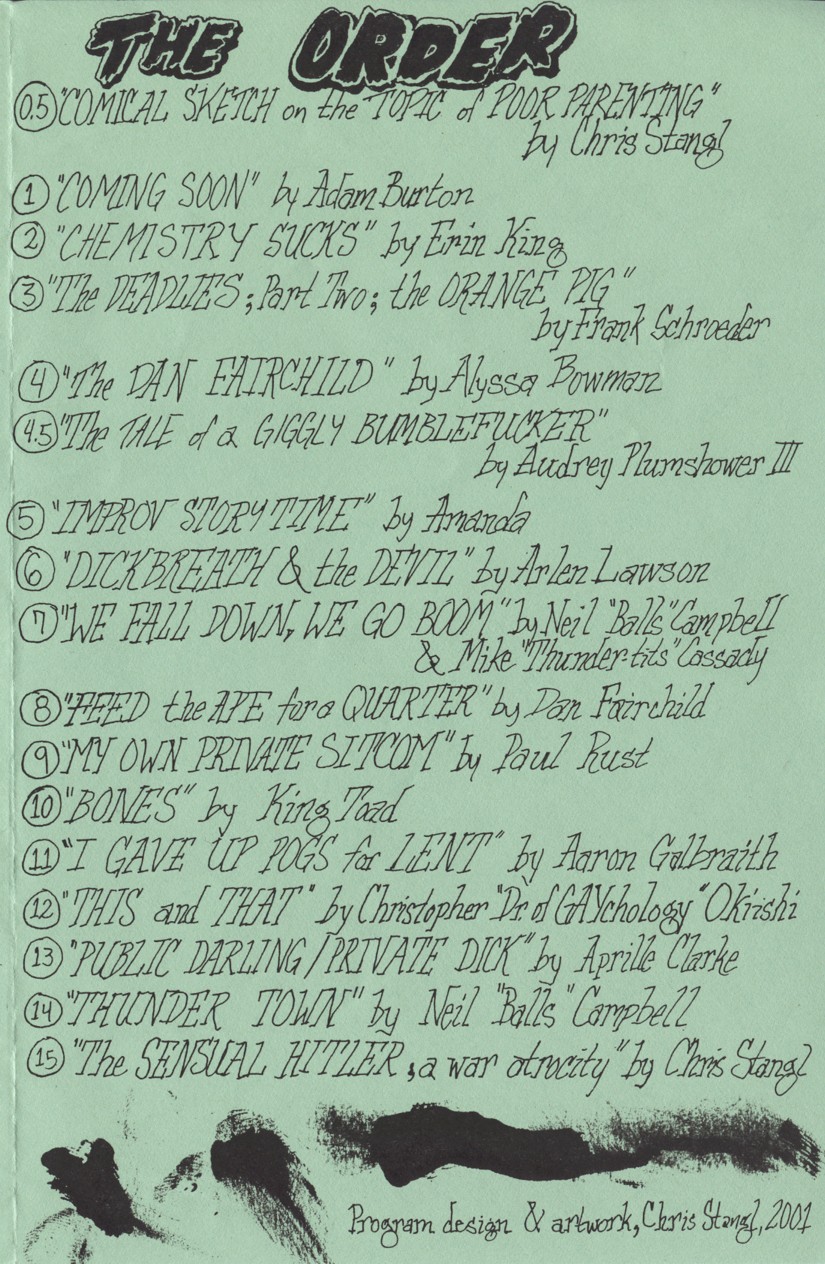 THE ORDER
0.5 "COMICAL SKETCH on the TOPIC of POOR PARENTING"
by Chris Stangl
1 "COMING SOON" by Adam Burton
2 "CHEMISTRY SUCKS" by Erin King
3 "The DEADLIES; Part Two; the ORANGE PIG"
by Frank Schroeder
4 "The DAN FAIRCHILD" by Alyssa Bowman
4.5 "The TALE of a GIGGLY BUMBLEFUCKER"
by Audrey Plumshower III
5 "IMPROV STORYTIME" by Amanda
6 "DICKBREATH & the DEVIL" by Arlen Lawson
7 "WE FALL DOWN, WE GO BOOM" by Neil "Balls" Campbell
& Mike "Thunder-tits" Cassady
8 "FEED the APE for a QUARTER" by Dan Fairchild
9 "MY OWN PRIVATE SITCOM" by Paul Rust
10 "BONES" by King Toad
11 "I GAVE UP POGS for LENT" by Aaron Galbraith
12 "THIS and THAT" by Christopher "Dr. of GAYchology" Okiishi
13 "PUBLIC DARLING/PRIVATE DICK" by Aprille Clarke
14 "THUNDER TOWN" by Neil "Balls" Campbell
15 "The SENSUAL HITLER, a war atrocity" by Chris Stangl
Program design & artwork, Chris Stangl, 2001